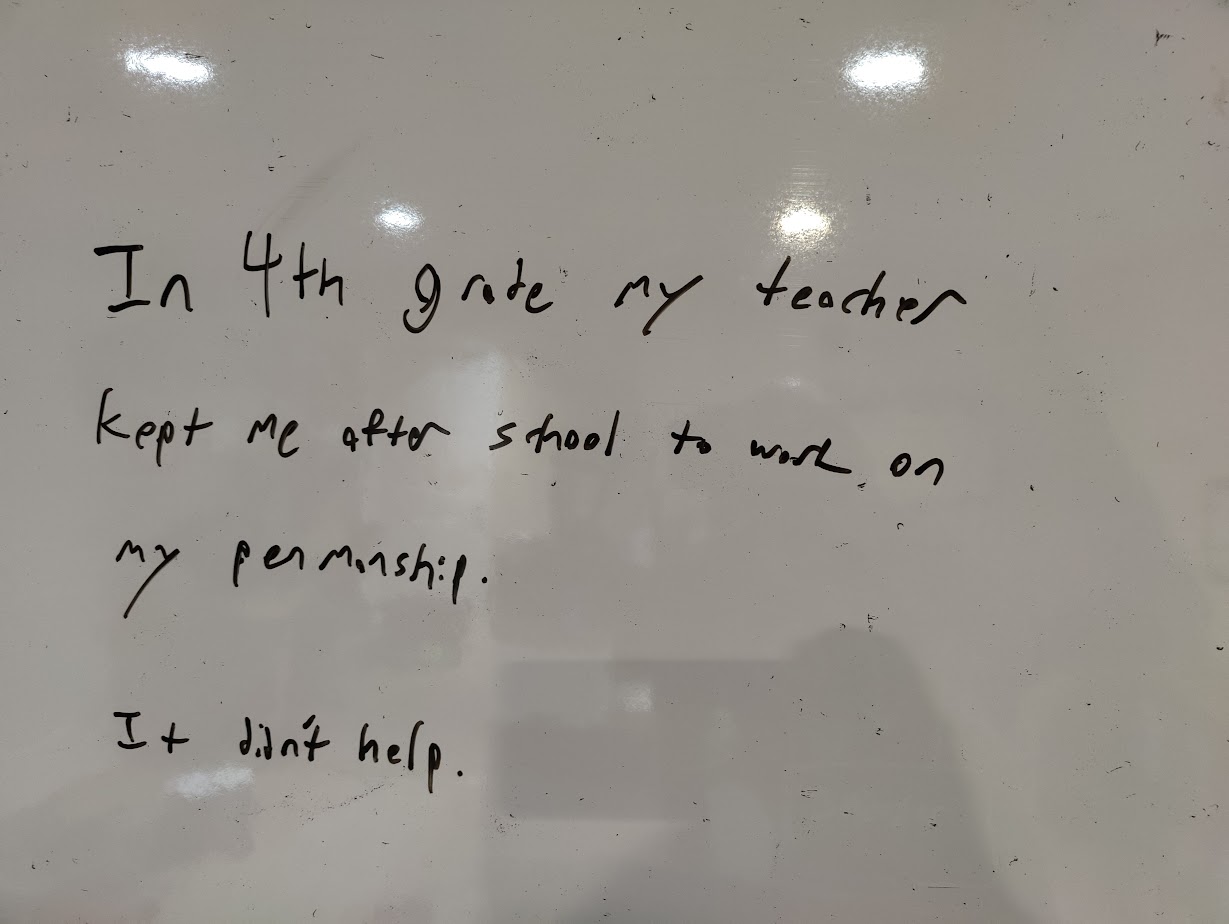 In 4th grade my teacher
kept me after school to work on
my penmanship.
It didn't help.